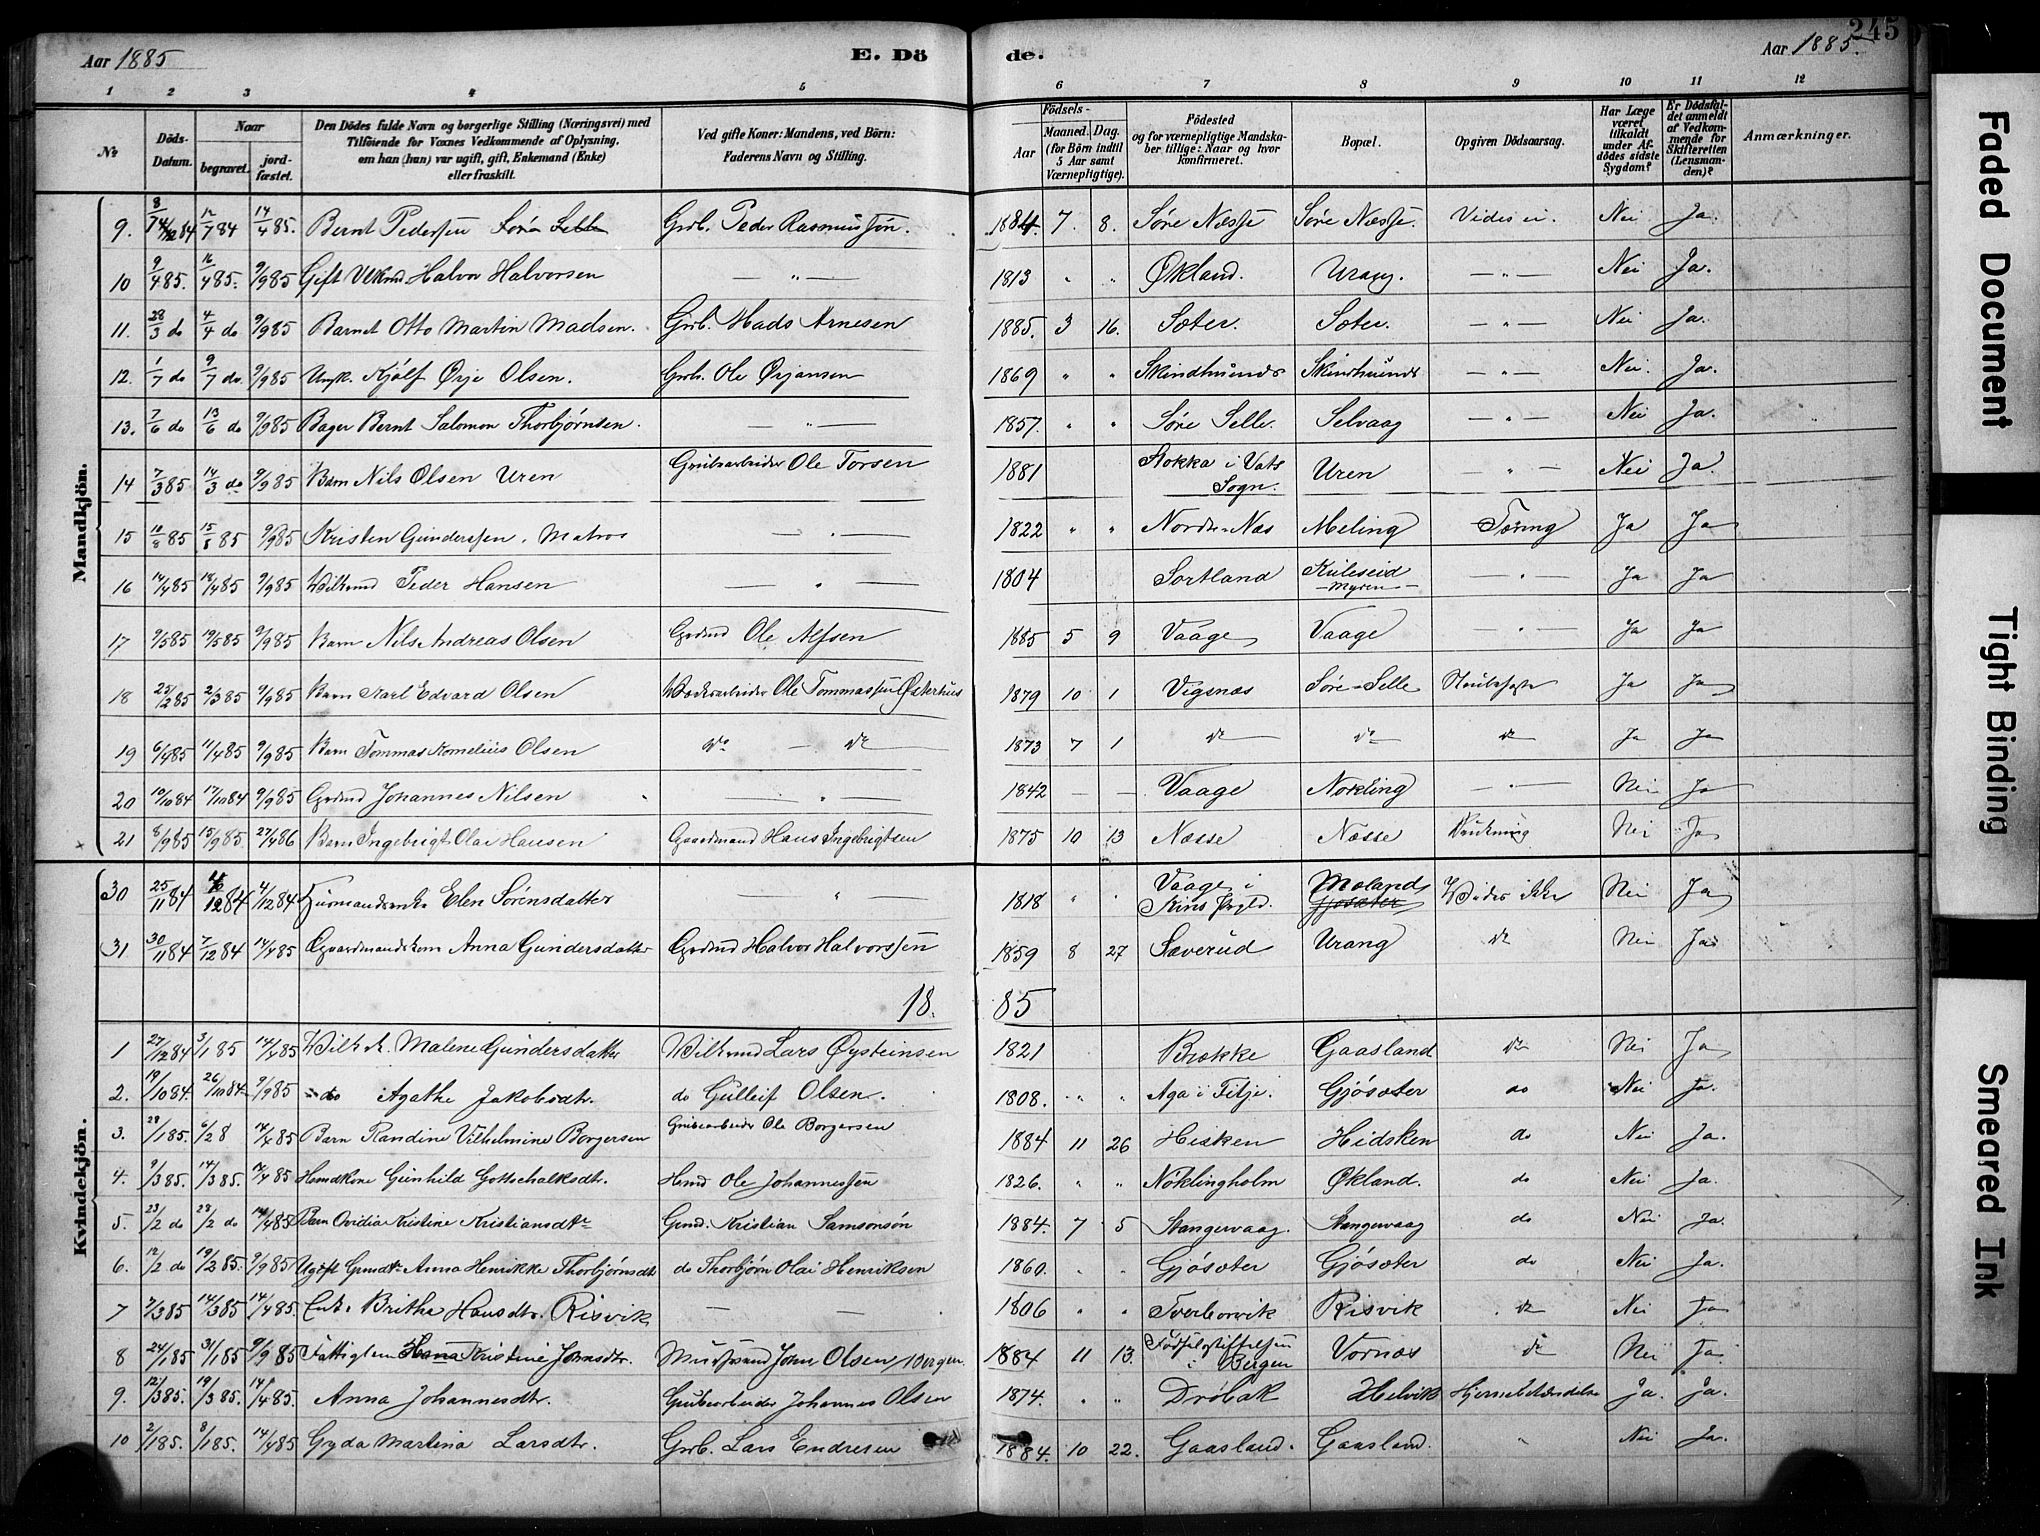 245
Aar 1885 E. Dö de. Aar 1885.
1 2 3 4 5 6 7 8 9 10 11 12
No Döds-Datum. Naar begravet. jordfæstet. Den Dödes fulde Navn og borgerlige Stilling (Næringsvei) med Tilföiende for Voxnes Vedkommende af Oplysning, om han (hun) var ugift, gift, Enkemand (Enke) eller fraskilt. Ved gifte Koner: Mandens, ved Börn: Faderens Navn og Stilling. Födsels- Aar Maaned. Dag. (for Börn indtil 5 Aar samt Værnepligtige). Födested og for værnepligtige Mandskaber tillige: Naar og hvor konfirmeret. Bopæl. Opgiven Dödsaarsag. Har Læge været tilkaldt under Afdödes sidste Sygdom? Er Dödsfaldet anmeldt af Vedkommende for Skifteretten (Lensmanden)? Anmærkninger.
Mandkjön.
9. 12/7 84 14/4 85. Bernt Pederssen Søre Selle Grb. Peder Rasmussøn. 1884. 7. 8. Søre Næsse Søre Næsse. Vides ei. Nei Ja.
10 9/4 85. 16/4 85. 9/9 85 Gift Halvor Halvorsen — " — 1813 " " Økland. Urang. — " — Nei Ja.
11. 28/3 do 4/4 do 9/9 85 Barnet Otto Martin Madsen. Grb. Mads Arnesen 1885. 3 16. Sæter. Sæter. — " — Nei Ja.
12. 1/7 do 9/7 do. 9/9 85 Ungk. Kjølf Ørje Olsen. Grb. Ole Ørjansen 1869 " " — " — Nei. Ja.
13. 7/6 do 13/6 do 9/9 85 Bager Bernt Salomon Thorbjørnsen. — " — 1857. " " Søre Selle. Selvaag — " — Nei Ja.
14 7/3 85 14/3 do 9/9 85 Barn Nils Olsen Uren Grubearbeider Ole Torsen 1881 Stokka i Vats Sogn. Uren — " — Nei Ja.
15 10/8 85 15/8 85 9/9 85 Kristen Gunderssen. Matros — " — 1822 " " Nordre-Næs Meling Tæring Ja Ja
16 14/4 85 18/4 85 9/9 85 Peder Hansen — " — 1804 Sortland Kuleseid Myren — " — Ja Ja
17 9/5 85 19/5 85 9/9 85 Barn Nils Andreas Olsen Grdmd Ole Alfsen 1885 5 9 Vaage Vaage — " — Ja Ja
18 25/2 85 2/3 85 9/9 85 Barn Karl Edvard Olsen Ole Tommassen Østerhus 1879 10 1 Vigsnæs Søre-Selle Ja Ja
19 6/4 85 11/4 85 9/9 85 Barn Tommas Kornelius Olsen do — do 1873 7 1 do do do Ja Ja
20 10/10 84 17/10 84 9/9 85 Grdmd Johannes Nilsen — " — 1842 — — Vaage Nokling — " — Nei Ja
21 8/9 85 15/9 85. 27/4 86 Barn Ingebrigt Olai Hansen Gaardmand Hans Ingebrigtsen 1875 10 13 Næsse Næsse Drukning Nei Ja
Kvindekjön.
30 25/11 84 12 84 4/12 84 Elen Sørensdatter — " — 1818 " " Vaage i Fins Prgld. Moland Gjøsæter Vides ikke Nei Ja
31. 30/11 84 7/12 84 14/4 85 Gaardmandskone Anna Gundersdatter Grdmd Halvor Halvorssen 1859 8 27 Sæverud Urang do Nei Ja
18. 85
1 27/12 84 3/1 85 14/4 85 Malene Gundersdatter Lars Øysteinsen 1821 Brække Gaasland do Nei Ja
2. 19/10 84. 26/10 84. 9/9 85 do Agathe Jakobsdtr. do Gulleif Olsen. 1808. " " Aga i Fitje. Gjøsæter do Nei Ja.
3. 28/1 85. 6/2 8 14/4 85 Barn Randine Vilhelmine Borgersen Grubearbeider Ole Borgersen 1884 11 26 Hisken Hidsken do Nei Ja.
4. 9/3 85. 14/3 85. 14/4 85 Hmdkone Gunhild Gottschalksdtr. Hmd Ole Johannessen 1826. " " Nöklingholm Økland. do Nei Ja.
5. 23/2 do 28/2 do 14/4 85 Barn Ovidia Kristine Kristiansdtr Gmd. Kristian Samsonsøn 1884. 7 5 Stangervaag. Stangervaag do Nei Ja.
6. 12/2 do 19/2 85. 9/9 85 Ugift Anna Henrikke Thorbjørnsdtr do Thorbjørn Olai Henriksen 1860. " " Gjøsæter Gjøsæter do Nei Ja.
7 7/3 85 14/3 85 14/4 85. Enke Britha Hansdtr. Risvik — — 1806 " " Tverborvik Risvik do Nei Ja
8 24/1 85 31/1 85 9/9 85 Fattiglem Hanna Kristine Johnsdtr. John Olsen, Bergen. 1884 11 13. Fødselsstiftelsen i Bergen Vornæs do Nei Ja
9. 12/3 85. 19/3 85. 14/4 85. Anna Johannesdtr. Grubearbeider Johannes Olsen 1874. " " Drøbak Helvik Hjernebetændelse Ja. Ja.
10 2/1 85. 8/1 85. 14/4 85 Gyda Martina Larsdtr. Grb. Lars Endresen 1884. 10 22. Gaasland. Gaasland. " Nei Ja.
Faded Document
Tight Binding
Smeared Ink